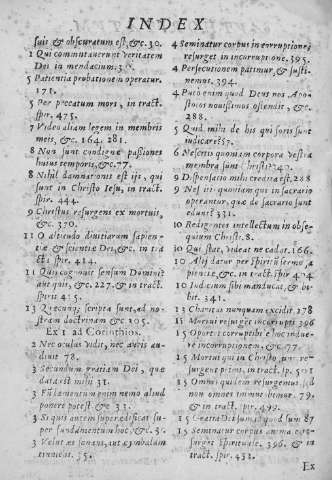 INDEX
suis & obscuratum est, &c. 30.
1 Qui commutauerunt veritatem
Dei in mendacium.
5 Patientia probationem operatur.
171.
5 Per peccatum mors, in tract.
spir. 475.
7 Video aliam legem in membris
meis, &c. 164. 281.
8 Non sunt condignæ passiones
huius temporis, &c. 77.
8 Nihil damnationis est iis, qui
sunt in Christo Iesu, in tract.
spir. 444.
9 Christus resurgens ex mortuis,
&c. 370.
11 O altitudo diuitiarum sapien-
tiæ & scientiæ Dei, &c. in tra
ct. spir. 414.
11 Quis cognouit sensum Domini?
aut quis, &c. 227. & in tract.
spirit 415.
15 Quæcunq; scripta sunt, ad no-
stram doctrinam &c 105.
Ex 1 ad Corinthios.
2 Nec oculus vidit, nec auris au-
diuit 78.
3 Secundum gratiam Dei, quæ
data est mihi 31.
3 Fundamentum enim nemo aliud
ponere potest &c 33.
3 Si quis autem superædificat su-
per fundamentum hoc, &c. 3
3 Velut æs sonans, aut cymbalum
tinniens. 35.
4 Seminatur corpus in corruptione,
resurget in incorruptione. 395.
4 Persecutionem patimur, & susti-
nemus. 394.
4 Puto enim quod Deus nos Apo-
stolos nouissimos ostendit, &c.
288.
5 Quid mihi de his qui foris sunt
iudicare? 57.
6 Nescitis quoniam corpora vestra
membra sunt Christi? 340.
9 Dispensatio mihi credita est. 288
9 Nescitis quoniam qui in sacrario
operantur, quæ de sacrario sunt
edunt? 331.
10 Redigentes intellectum in obse-
quium Christi. 8.
10 Qui stat, videat ne cadat. 166.
10 Alij datur per spiritum sermo sa
pientiæ, &c. in tract. spir 404
10 Iudicium sibi manducat, & bi-
bit. 341.
13 Charitas nunquam excidit 178
15 Mortui resurgent incorrupti 396
15 Oportet corruptibile hoc indue-
re incorruptionem, &c. 77.
15 Mortui qui in Christo sunt re-
surgent primi, in tract. sp. 501
15 Omnes quidem resurgemus sed
non omnes immutabimur. 79.
& in tract. spir. 499.
15 Gratia Dei sum id quod sum 87
15 Seminatur corpus animale re-
surget spirituale. 396. & in
tract. spir. 432.
Ex